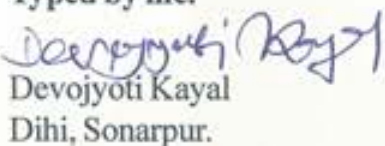 Typed by me:
Devojyoti Kayal
Devojyoti Kayal
Dihi, Sonarpur.